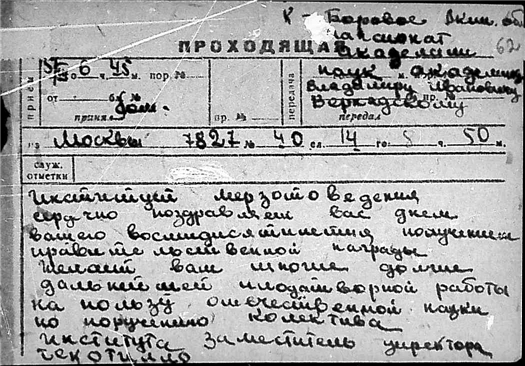 К - Боровое Акм. обл
пансионат
ПРОХОДЯЩАЯ
62
академии
наук академику
Владимиру Ивановичу
Вернадскому
прием
15 6 45 м. пор. №
от
бл №
принял
передача
пр. №
передал
из Москвы 7827 № 40 сл. 14 го 8 ч. 50 м.
служ.
отметки
Институт мерзлотоведения
сердечно поздравляет вас днем
вашего восмидисятилетия получением
правительственной награды
Желаит вам многие долгие
дальнейшей плодотворной работы
на пользу отечественной науки
по поручению колектива
института заместитель директора